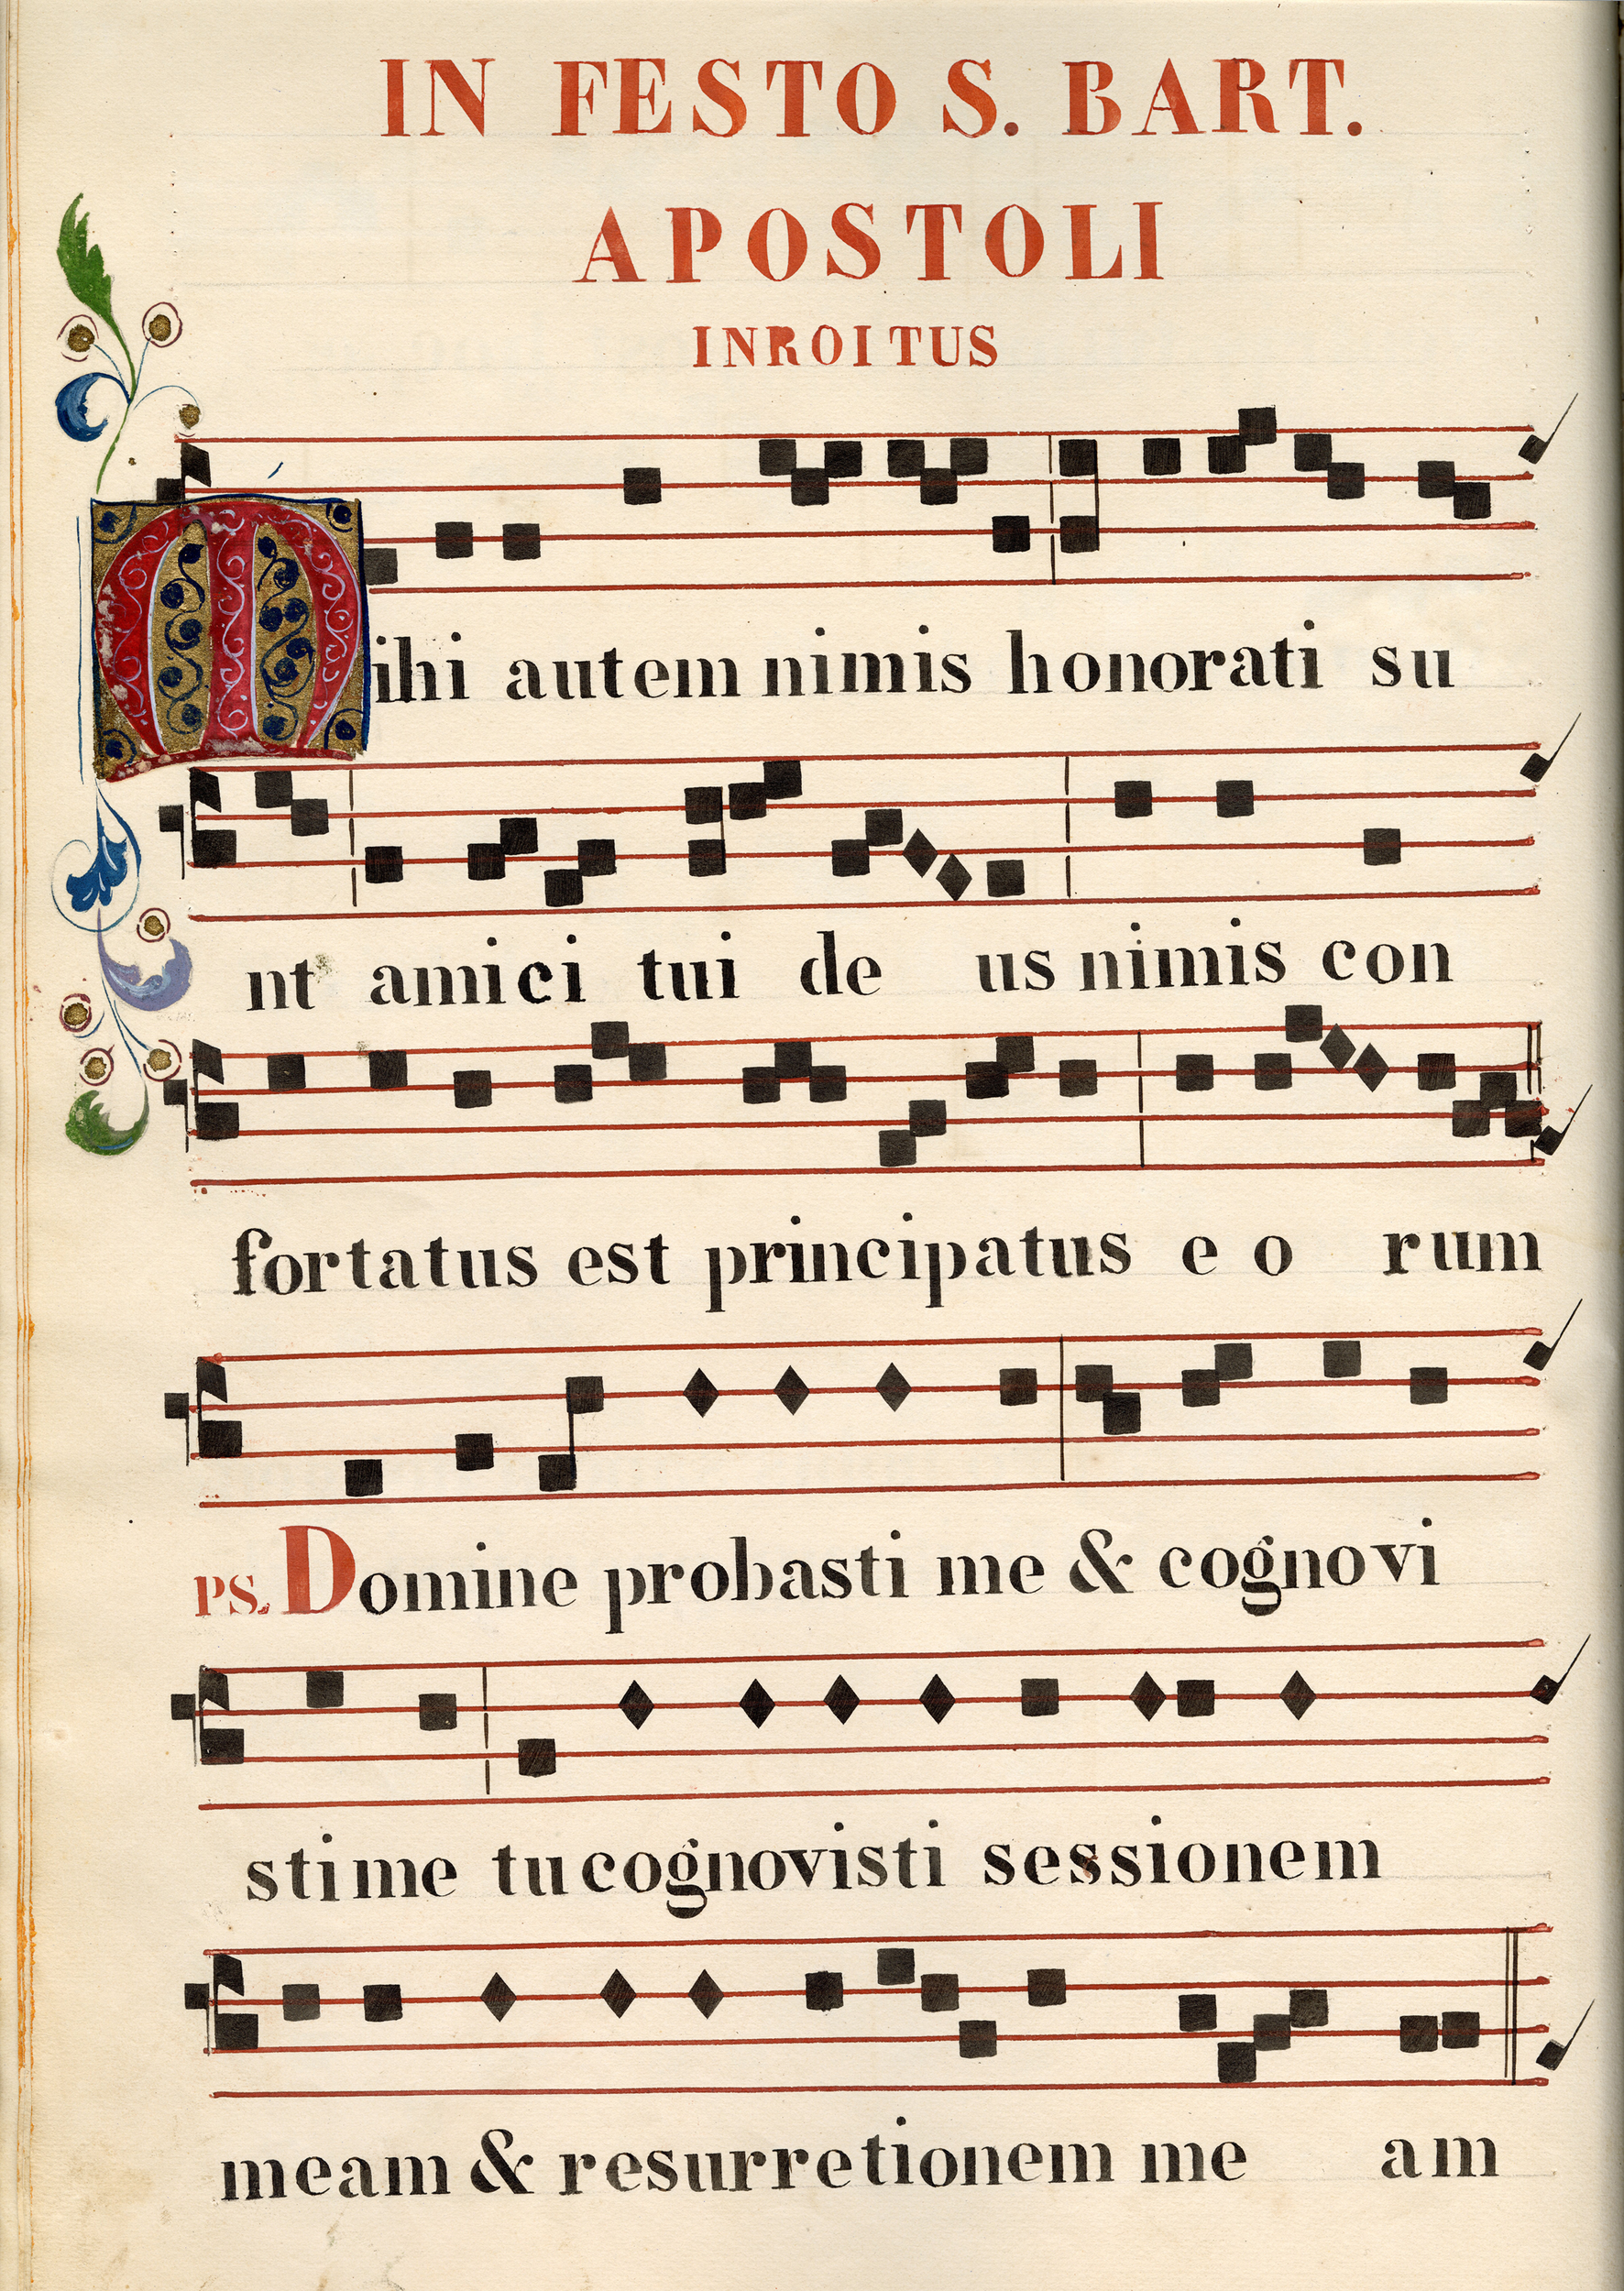 IN FESTO S. BART.
APOSTOLI
INROITUS
Mihi autem nimis honorati su
nt amici tui de us nimis con
fortatus est principatus e o rum
PS. Domine probasti me & cognovi
stime tu cognovisti sessionem
meam & resurretionem me am